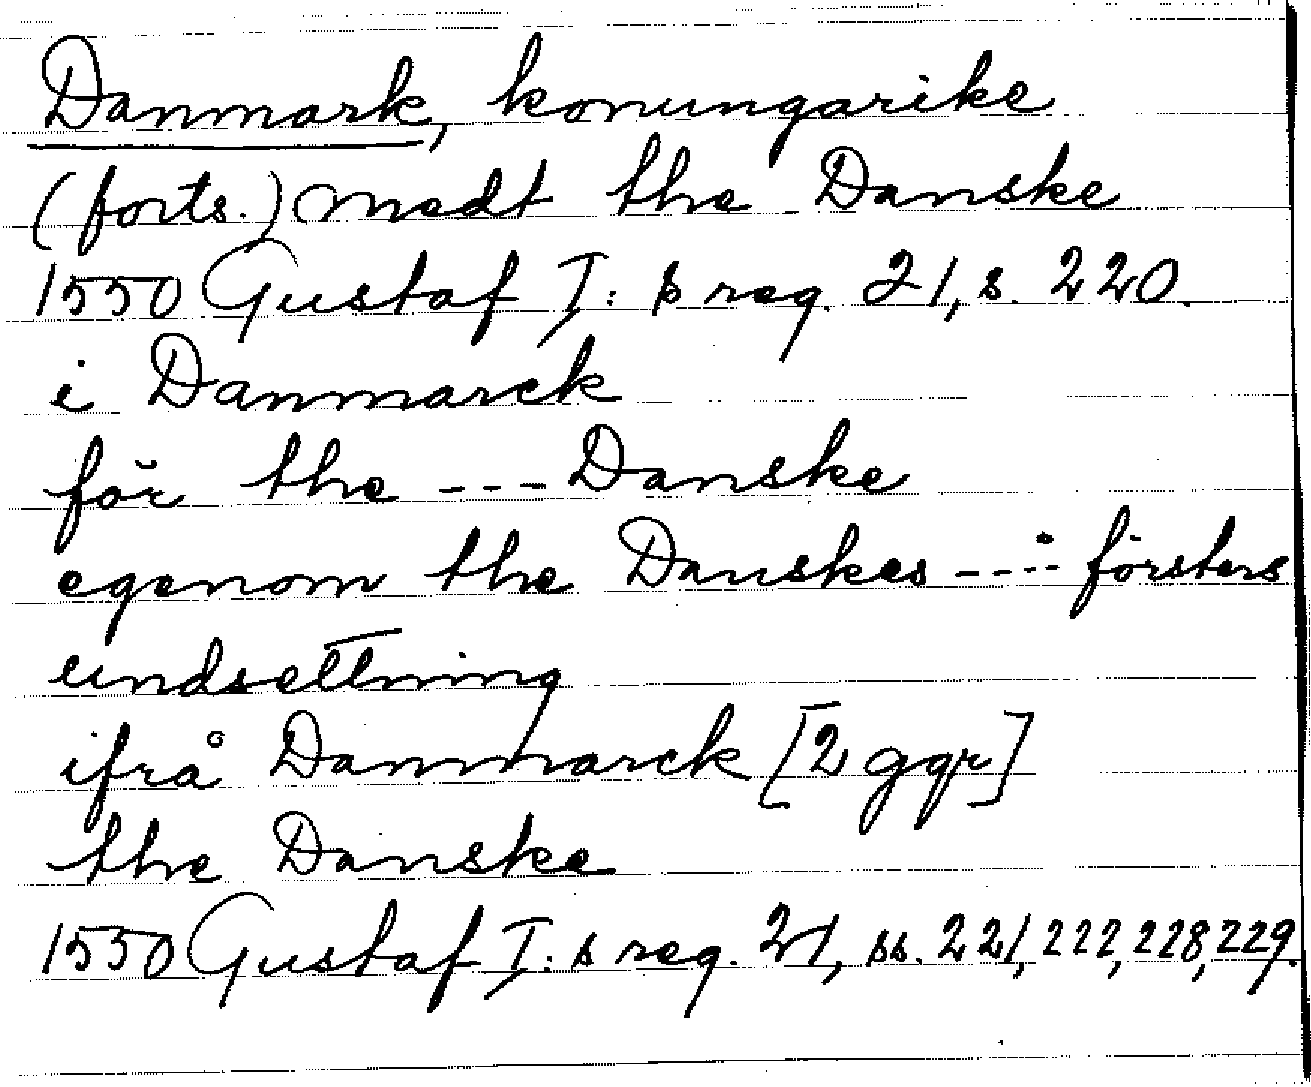 Danmark, konungarike
(forts.) medt the Danske
1550 Gustaf I:s reg. 21, s. 220.
i Danmarck
för the --- Danske
egenom the Danskes ---- försters
undsettning
ifrå Danmarck [2 ggr]
the Danske
1550 Gustaf I:s reg. 21, ss. 221, 222, 228, 229.